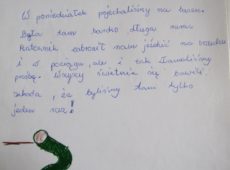 W poniedziałek pojechaliśmy na basen.
Była tam bardzo długa rura
Ratownik zabronił nam jeździć na brzuchu
i w pociągu, ale i tak złamaliśmy
prośbę. Wszyscy świetnie się bawili
szkoda, że byliśmy tam tylko
jeden raz!